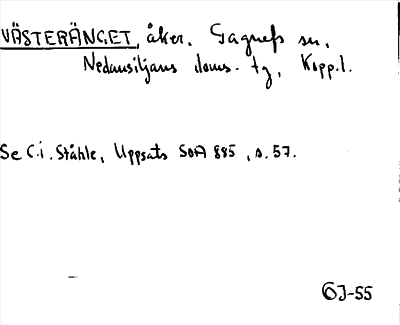 VÄSTERÄNGET, åker. Gagnefs sn,
Nedansiljans doms. tg, Kopp.l.
Se C.i. Ståhle, Uppsats SOA 885, s. 57.
GJ-55